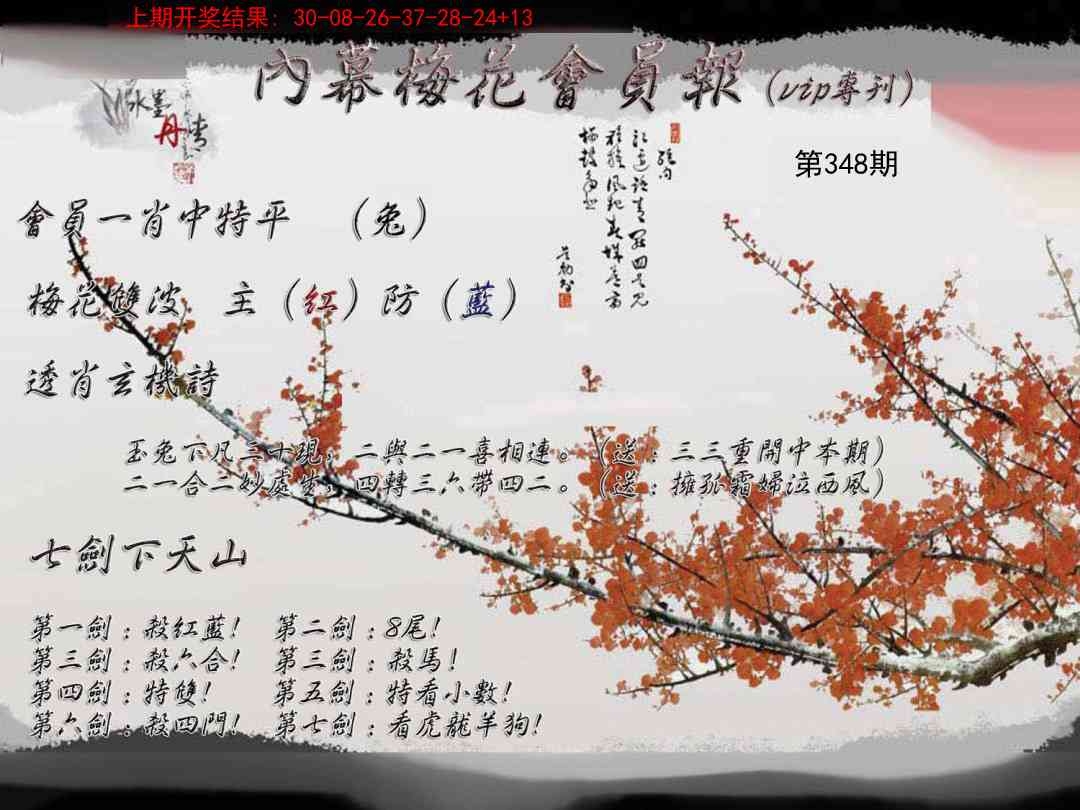 上期开奖结果: 30-08-26-37-28-24+13
內幕梅花會員報(vip專刊)
水墨
丹青
第348期
會員一肖中特平 (兔)
梅花雙波 主(红)防(藍)
透肖玄機詩
玉兔下凡三十現,二與二一喜相連。(送:三三重開中本期)
二一合二妙處生,四轉三六帶四二。(送:擁孤霜婦泣西風)
七劍下天山
第一劍:殺紅藍! 第二劍:8尾!
第三劍:殺六合! 第三劍:殺馬!
第四劍:特雙! 第五劍:特看小數!
第六劍:殺四門! 第七劍:看虎龍羊狗!